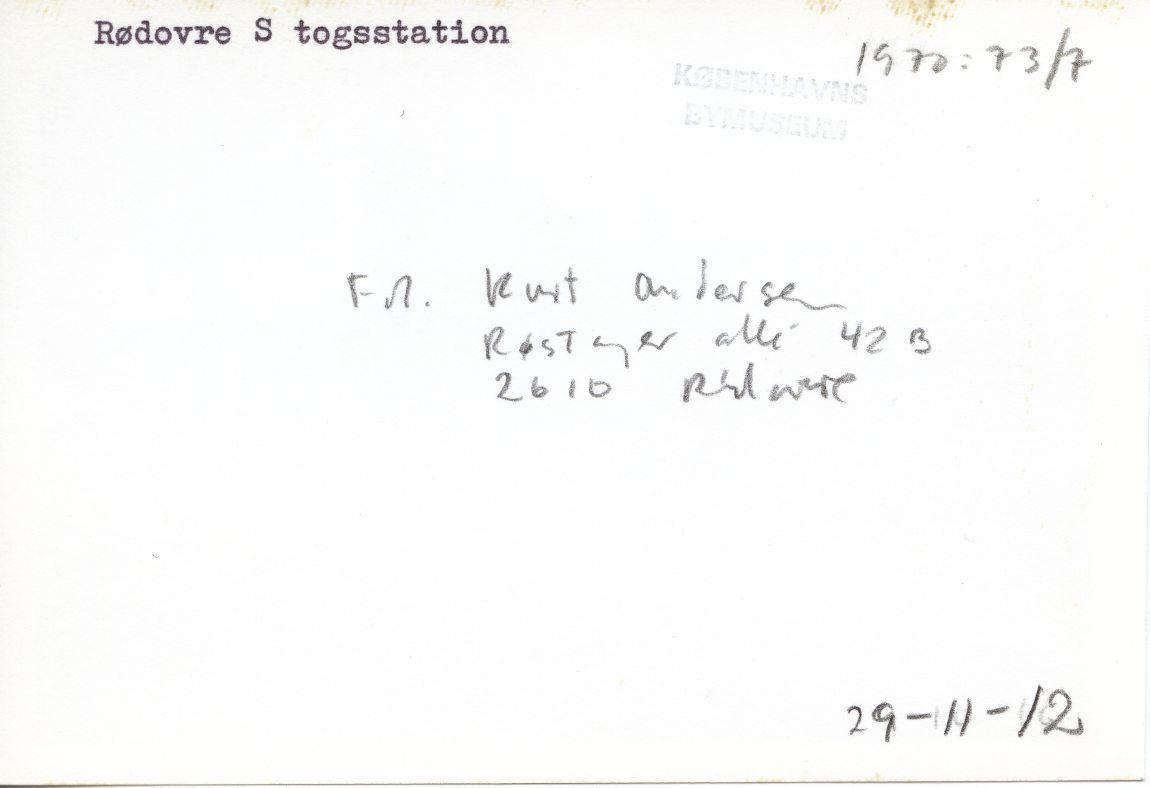 Rødovre S togsstation
1970:73/7
KØBENHAVNS
BYMUSEUM
Kurt Andersen
alle 42 B
2610 Rødovre
29-11-12